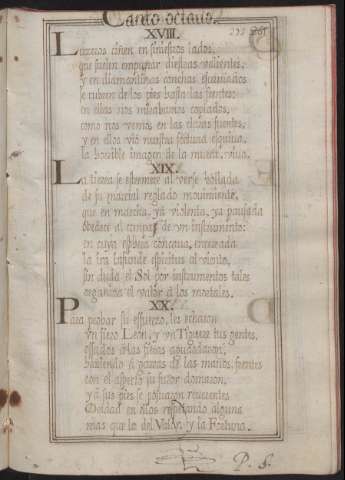 Canto octavo.
293 265
XVIII.
ciñen en siniestros lados,
que suelen empuñar diestras valientes,
y en diamantinas conchas escamados
se cubren de los pies hasta las frentes:
en ellas nos mirabamos copiados,
como nos vemos en las claras fuentes,
y en ellos vio nuestra fortuna esquiva
la horrible imagen de la muerte viva.
XIX.
La tierra se estremece al verse hollada
de su marcial reglado movimiento,
que en marcha, ya violenta, ya pausada
obedece al compas de un instrumento:
en cuya esphera concava,
la espiritus al viento,
sin duda el Sol por instrumentos tales
organiza el valor a los mortales.
XX.
Para probar su esfuerzo, les echaron
un fiero Leon, y un Tigre tus gentes,
a las fieras
haciendo a garras de las manos, frentes
con el aspecto su furor domaron,
y a sus pies se postraron reverentes
Deidad en ellos respetando alguna
mas que la del Valor, y la Fortuna.
P. S.